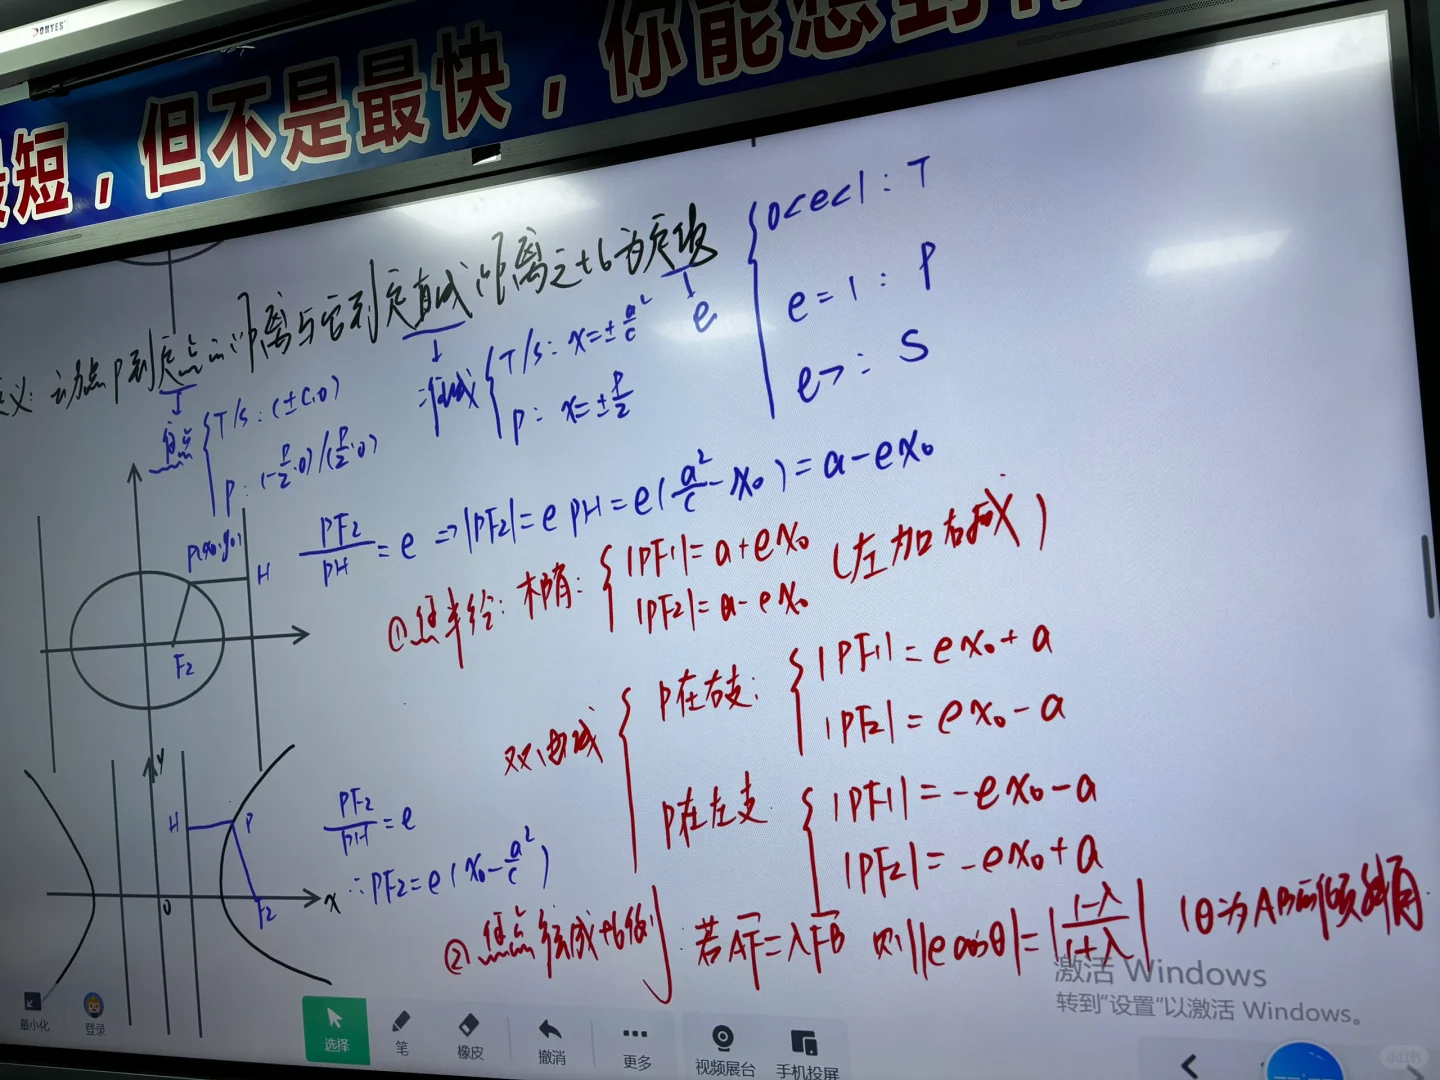 DONYES
短，但不是最快，你能想到
义：动点P到定点的距离与它到定直线距离之比为定值
焦点 { T/S：(±c,0)
P：(-p/2,0)/(p/2,0)
准线 { T/S：x=±a²/c
P：x=±p/2
e
{ 0<e<1：T
e=1：P
e>：S
P(x₀,y₀)
H
F2
PF2/PH=e⇒|PF2|=e PH=e(a²/c-x₀)=a-ex₀
①焦半径：椭圆：{ |PF1|=a+ex₀
|PF2|=a-ex₀
(左加右减)
双曲线 { P在右支：{ |PF1|=ex₀+a
|PF2|=ex₀-a
P在左支 { |PF1|=-ex₀-a
|PF2|=-ex₀+a
y
H
P
x
0
F2
PF2/PH=e
∴PF2=e(x₀-a²/c)
②焦点弦成比例：若AF=λFB 则|ecosθ|=|1-λ/1+λ| (θ为AB的倾斜角
激活 Windows
转到"设置"以激活 Windows。
最小化
登录
选择
笔
橡皮
撤消
更多
视频展台
手机投屏
小红书